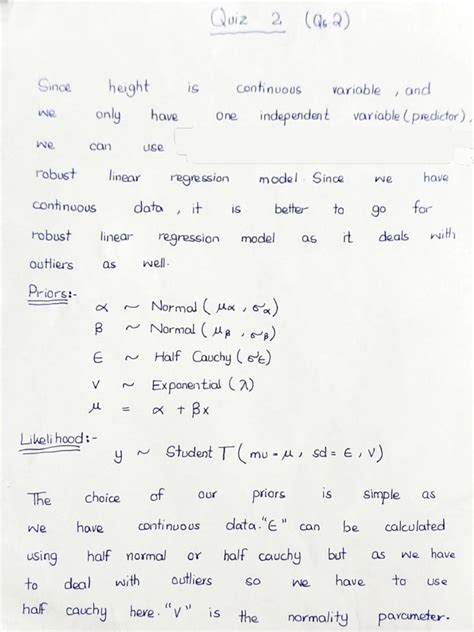 Quiz 2 (Qs 2)
Since height is continuous variable, and
we only have one independent variable (predictor),
we can use
robust linear regression model. Since we have
continuous data, it is better to go for
robust linear regression model as it deals with
outliers as well.
Priors:-
α ~ Normal (μα, σα)
β ~ Normal (μβ, σβ)
ϵ ~ Half Cauchy (σϵ)
v ~ Exponential (λ)
μ = α + βx
Likelihood:-
y ~ Student T (mu = μ, sd = ϵ, v)
The choice of our priors is simple as
we have continuous data. "ϵ" can be calculated
using half normal or half cauchy but as we have
to deal with outliers so we have to use
half cauchy here. "v" is the normality parameter.